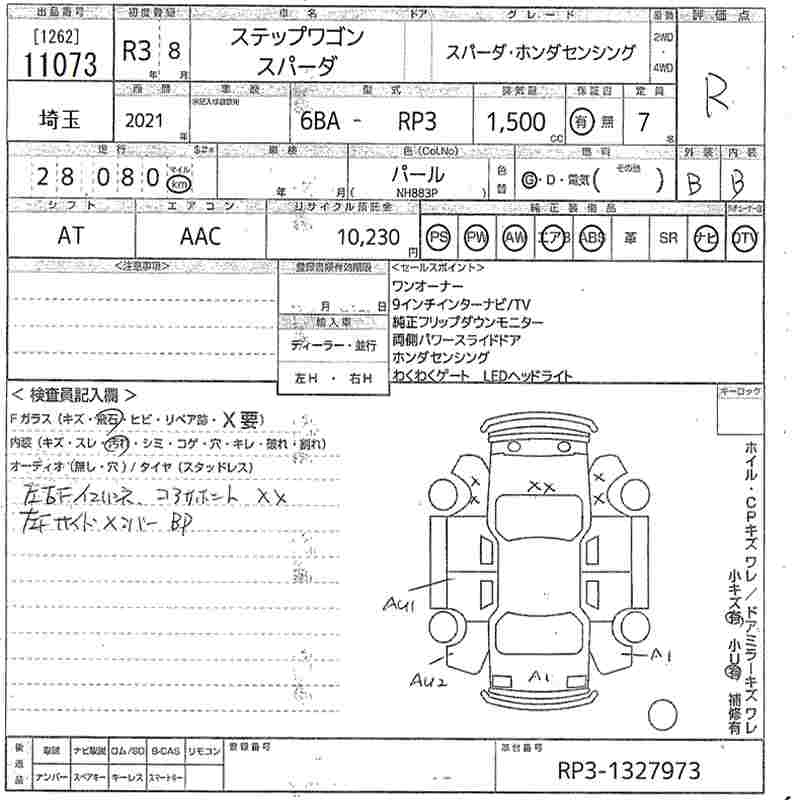 出品番号 初度登録 車名 ドア グレード 駆動 評価点
[1262]
11073 R3年 8月 ステップワゴン スパーダ スパーダ・ホンダセンシング 2WD・4WD R
西暦 車歴 型式 排気量 保証書 定員
埼玉 2021年 6BA - RP3 1,500cc 有 無 7名
走行 車検 色(Col.No) 燃料 外装 内装
28 080 マイル km 年 月( パール NH883P ) 色替 G・D・電気( その他 ) B B
シフト エアコン リサイクル預託金 純正装備品
AT AAC 10,230円 PS PW AW エアB ABS 革 SR ナビ DTV
<注意事項> 登録書類有効期限 <セールスポイント>
月 日
輸入車
ディーラー・並行
左H・右H
ワンオーナー
9インチインターナビ/TV
純正フリップダウンモニター
両側パワースライドドア
ホンダセンシング
わくわくゲート LEDヘッドライト
キーロック
<検査員記入欄>
Fガラス(キズ・飛石・ヒビ・リペア跡・X要)
内装(キズ・スレ・汚れ・シミ・コゲ・穴・キレ・破れ・割れ)
オーディオ(無し・穴)/タイヤ(スタッドレス)
左右Fインパネ、コアサポート XX
左Fサイドメンバー BP
X X XX X X
AU1
AU2 A1 A1
ホイル・CPキズ ワレ/ドアミラーキズ ワレ
小キズ有 小U有 補修有
後送品 取説 ナビ取説 ロム/SD B-CAS リモコン 登録番号 車台番号
ナンバー スペアキー キーレス スマートキー RP3-1327973